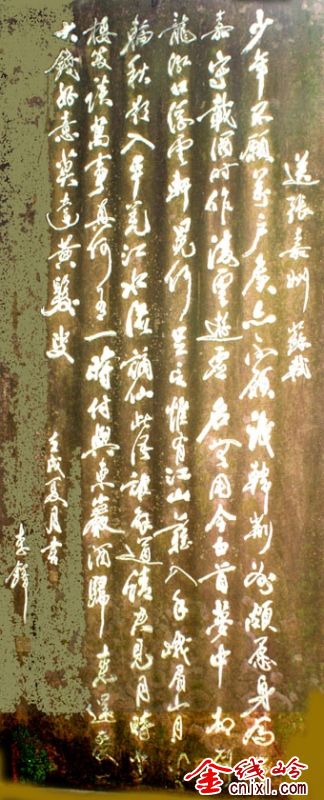 送張嘉州 蘇軾
少年不願萬戶侯亦不願識韓荊州頗愿身爲漢
嘉守載酒時作凌雲遊虛名無用今白首夢中却到
龍泓口浮雲軒冕何足言惟有江山難入手峨眉山月半
輪秋影入平羌江水流謫仙此語誰解道請君見月時登
樓笑談萬事真何有一時付與東巖酒歸來還受一
大錢好意莫違黃髮叟
壬戌夏月書
李鐸
金钱岭
cnlxl.com